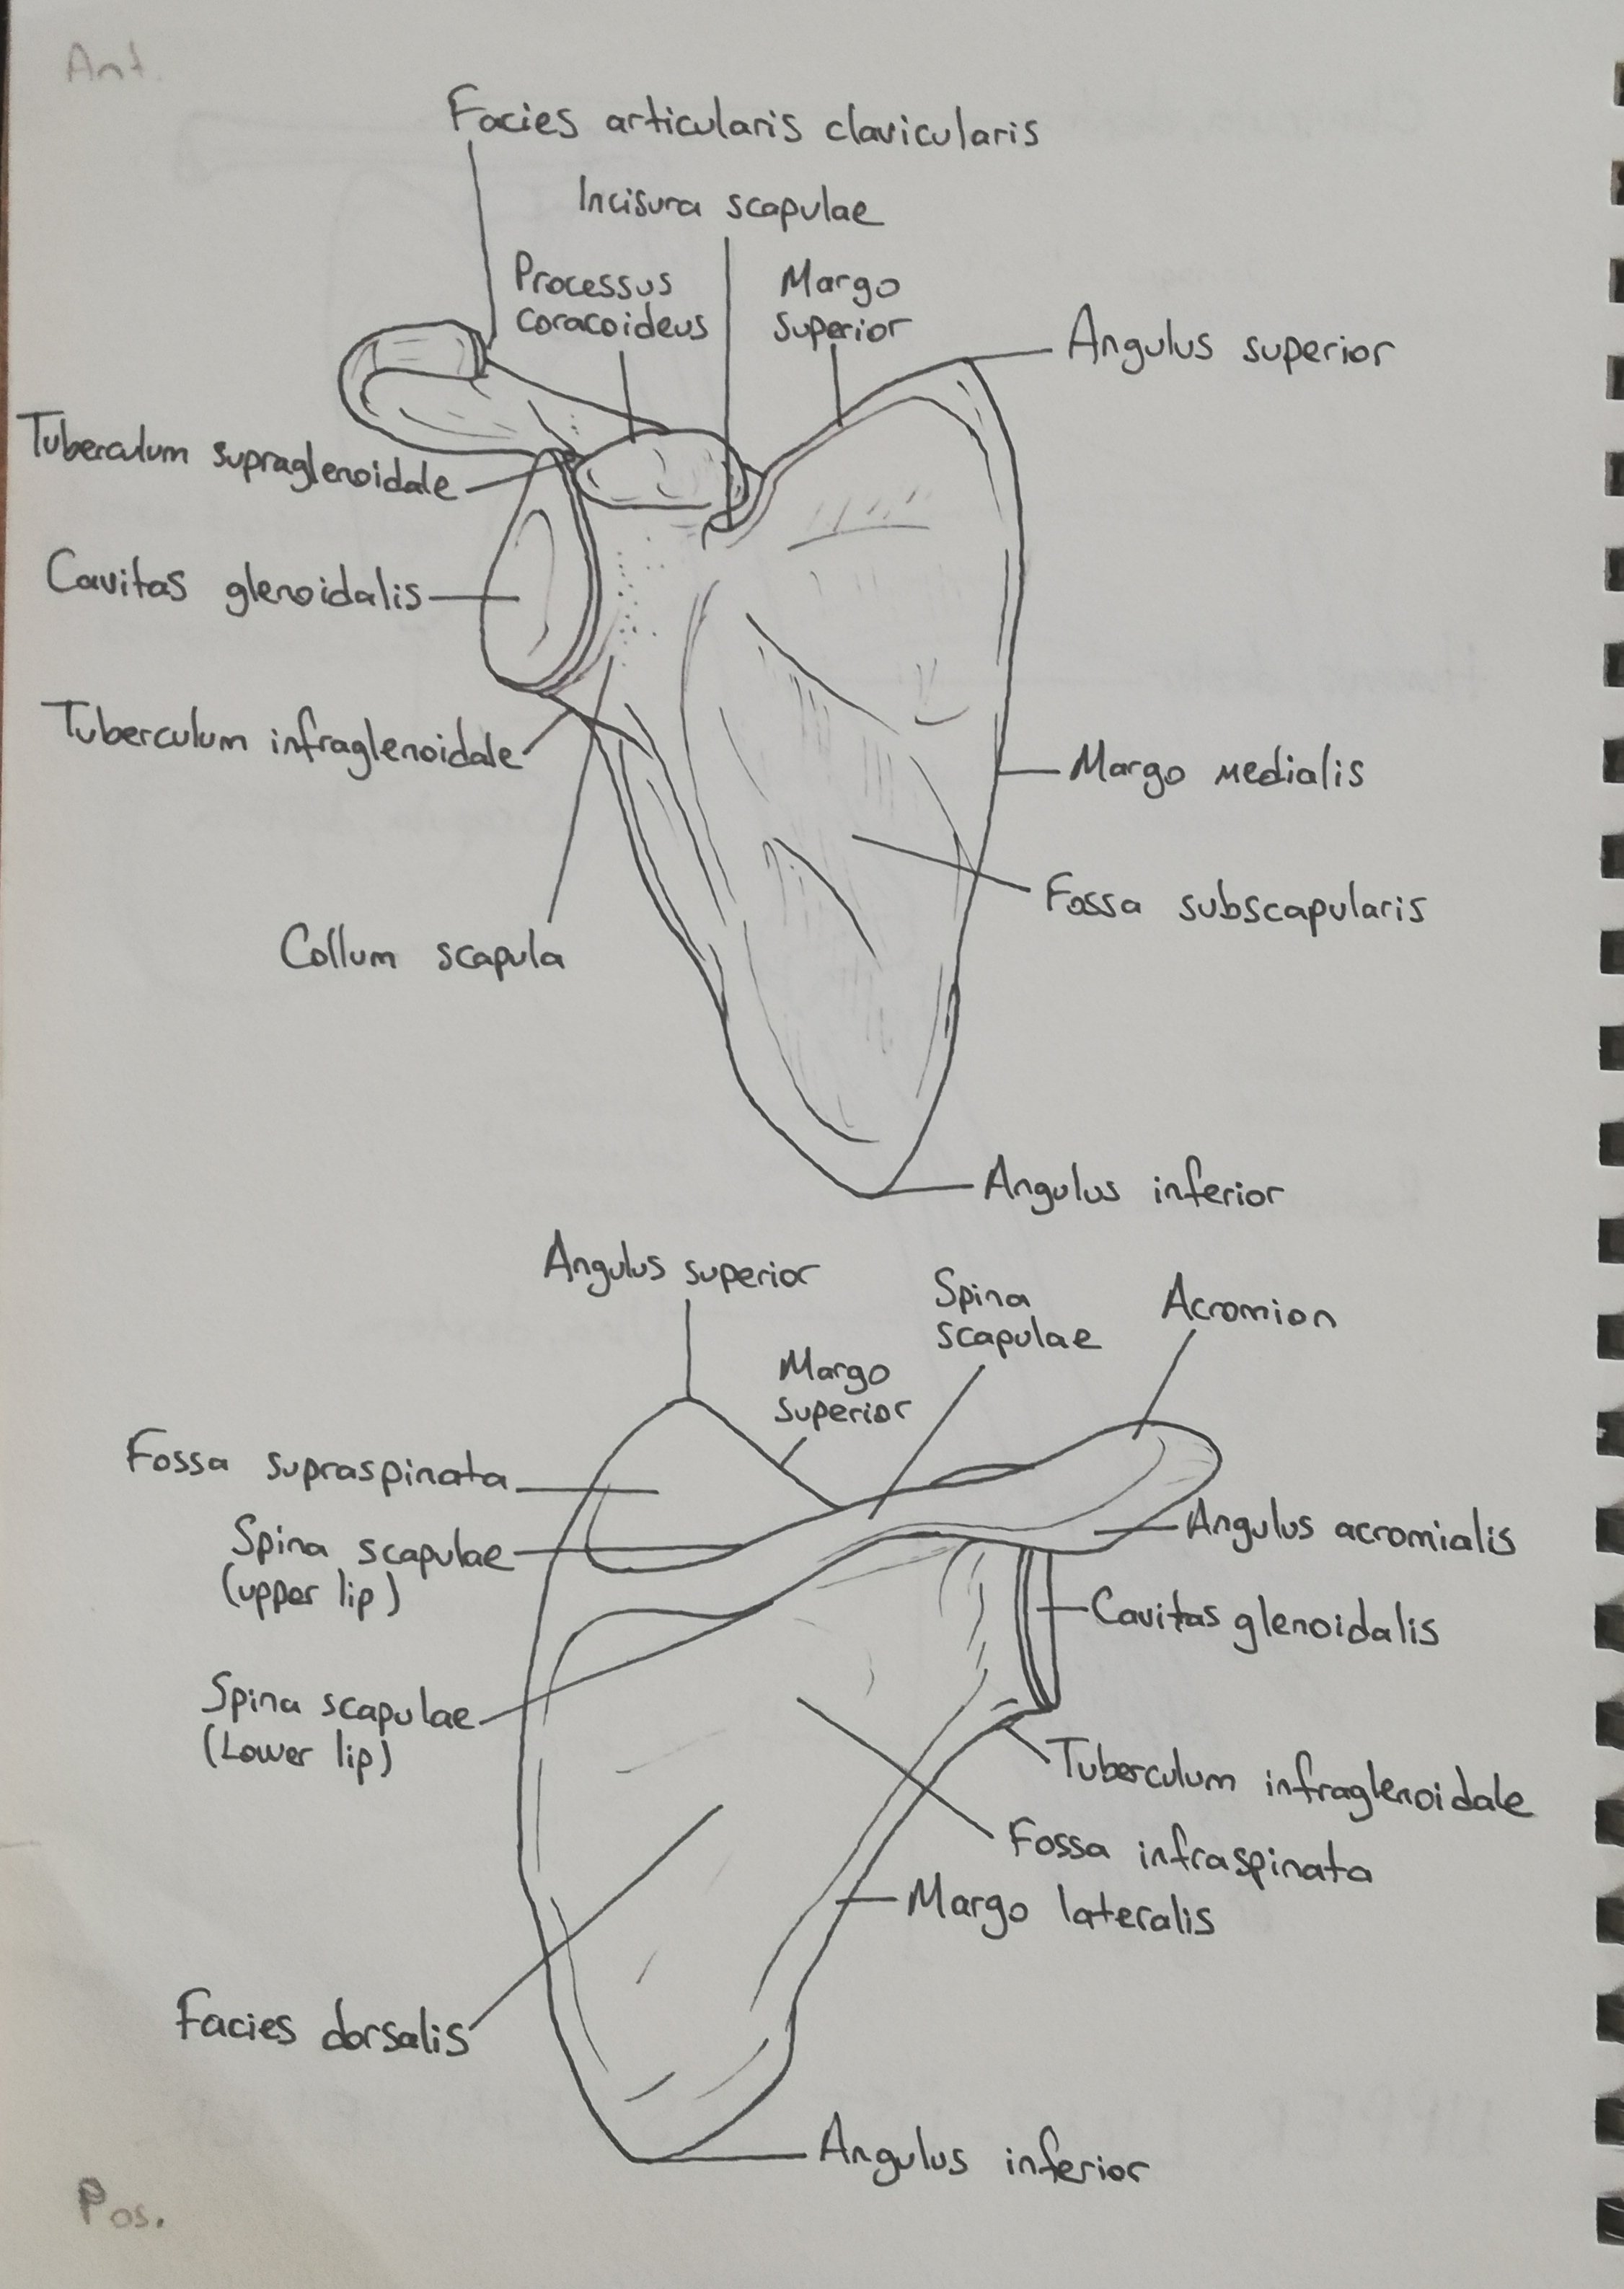 Ant.
Facies articularis clavicularis
Incisura scapulae
Processus
coracoideus
Margo
superior
Angulus superior
Tuberculum supraglenoidale
Cavitas glenoidalis
Tuberculum infraglenoidale
Margo medialis
Fossa subscapularis
Collum scapula
Angulus inferior
Angulus superior
Spina
scapulae
Acromion
Margo
superior
Fossa supraspinata
Spina scapulae
(upper lip)
Angulus acromialis
Cavitas glenoidalis
Spina scapulae
(Lower lip)
Tuberculum infraglenoidale
Fossa infraspinata
Margo lateralis
Facies dorsalis
Angulus inferior
Pos.